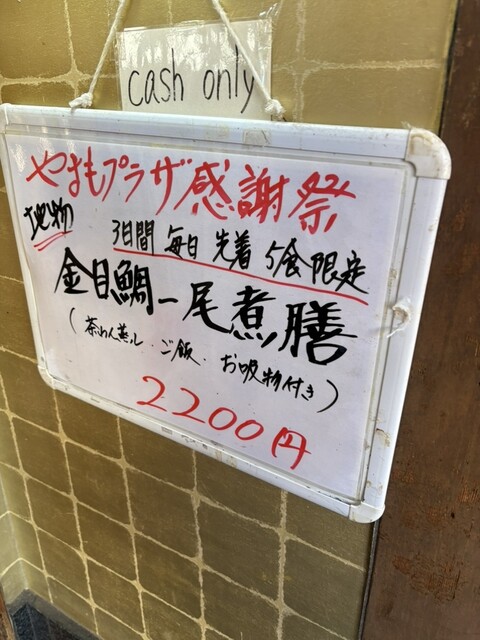 cash only
やまもプラザ感謝祭
地物
3日間 毎日 先着 5食限定
金目鯛一尾煮膳
(茶わん蒸し・ご飯・お吸物付き)
2200円